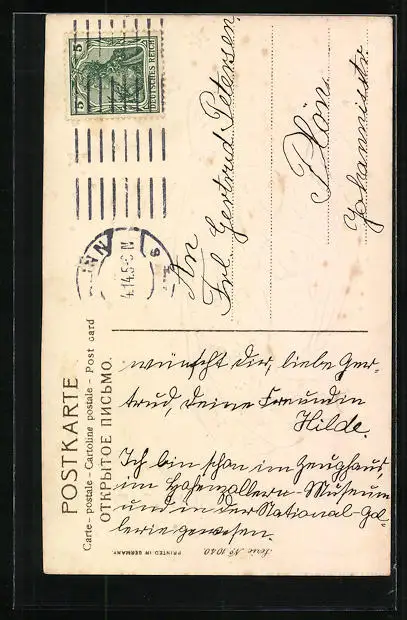 POSTKARTE
Carte-postale - Cartoline postale - Post card
ОТКРЫТОЕ ПИСЬМО.
5 DEUTSCHES REICH 5
4.14.5-6 N
An
Frl. Gertrud Petersen
Plön
Johannisstr.
wünscht Dir, liebe Ger-
trud, Deine Freundin
Hilde.
Ich bin schon im Zeughaus,
im Hohenzollern-Museum
und in der National-Gal-
lerie gewesen.
Serie No 1040
PRINTED IN GERMANY.